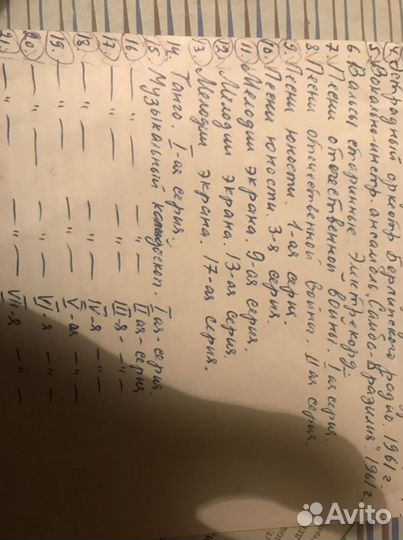 4 Эстрадный оркестр Берлинского радио. 1961 г.
5. Вокально-инстр. ансамбль „Самба-Бразилия" 1961 г.
6 Вальсы старинные. Электрекорд
7. Песни отечественной войны. I ая серия.
8. Песни отечественной войны. II ая серия.
9. Песни юности. 1-ая серия.
10. Песни юности. 3-я серия.
11. Мелодии экрана. 9-ая серия.
12. Мелодии экрана. 13-ая серия.
13. Мелодии экрана. 17-ая серия.
14. Танго. I-ая серия
15. Музыкальный калейдоскоп. I ая-серия.
16. — " — — " — II ая-серия
17. — " — — " — III-я — " —
18. — " — — " — IV-я — " —
19. — " — — " — V-ая — " —
20. — " — — " — VI-я — " —
21. — " — — " — VII-я — " —
Avito